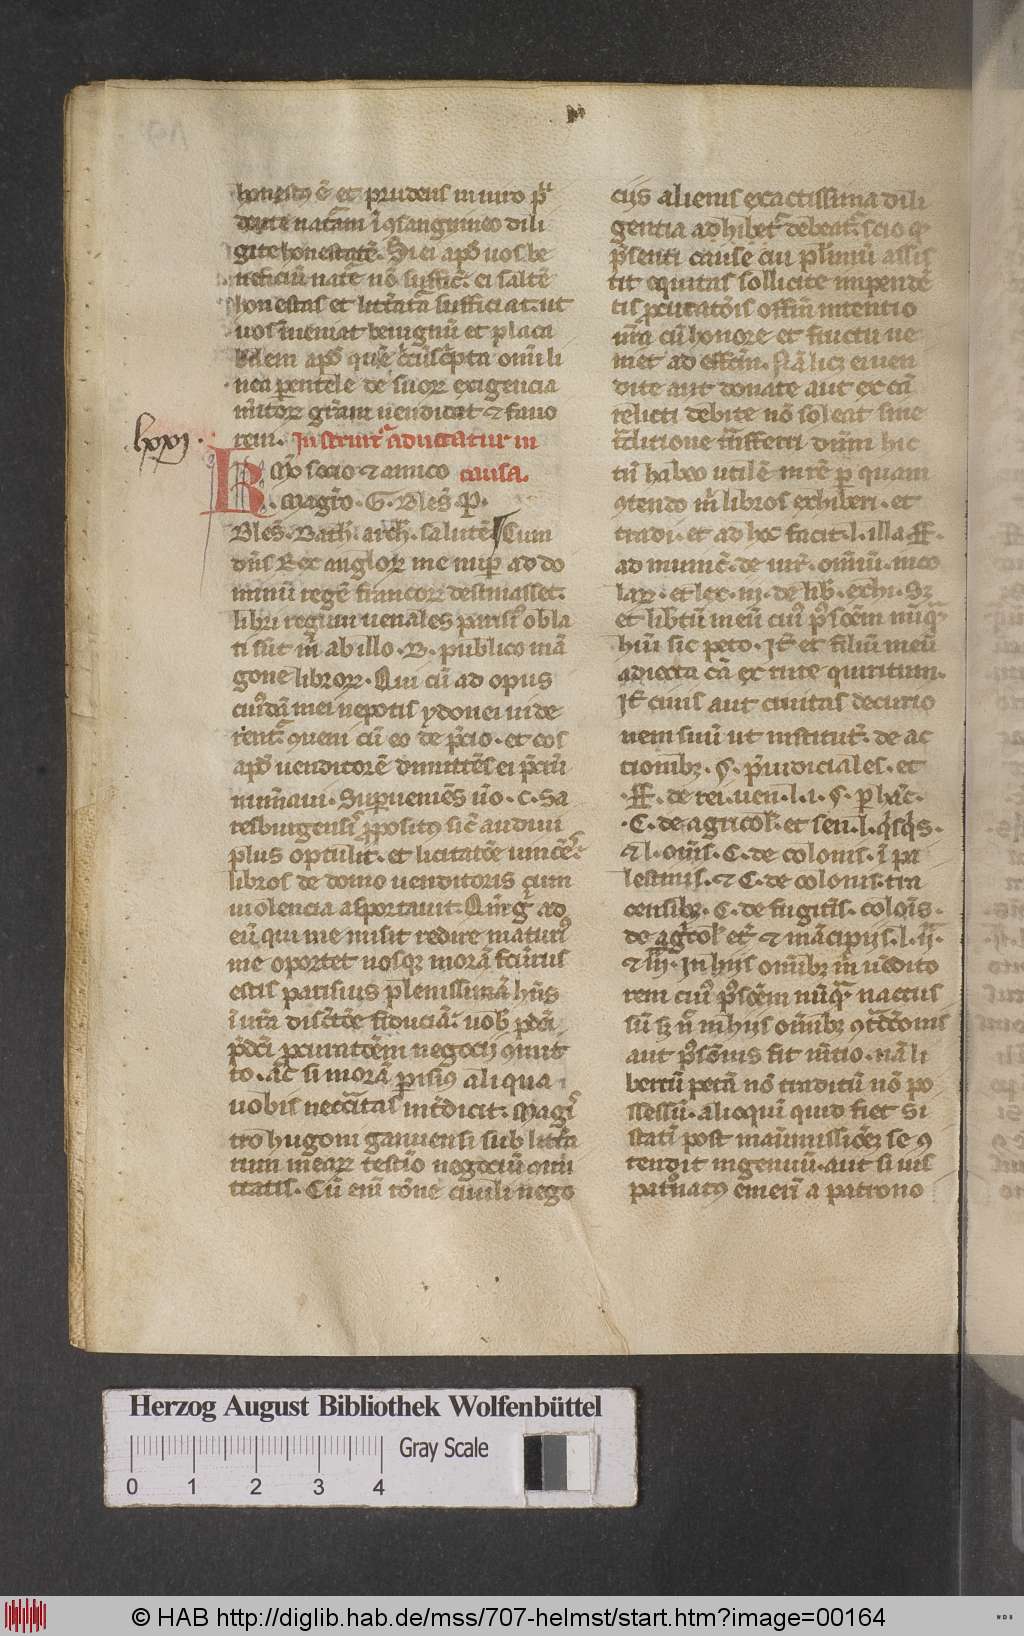 honestus ē et prudens in uiro p̄
dente natām ī ꝯsanguineo dili
gite honestatē. Si ei apđ uos be
neficiū nate nō suffic̄. ei saltē
honestas et litt̄ata sufficiat. ut
uos īueniat benignū et placa
bilem apđ quē
nea parentele de suoꝝ exigencia
meritoꝝ gr̄am uendicat ⁊ fauo
rem. Instruit᷑ aduocatur in
lxxi.
socio ⁊ amico causa.
R. magr̄o. G. Bleſ. P.
Bleſ. Bath. arch. salutē Cum
dn̄s Rex angloꝝ me nup ad do
minū regē francoꝝ destinasset.
libri legum uenales parisꝰ obla
ti sūt m̄ ab illo. B. publico mā
gone libroꝝ. Qui cū ad opus
cuiꝰdā mei nepotis ydonei uide
rent᷑ ꝯueni cū eo de p̄cio. et eos
apđ uenditorē dimittēs ei p̄ciū
numaui. Supueniēs ūo. C. Sa
resburgensis p̄positꝰ sic̄ audiui
plus optulit. et licitatōe uincēs
libros de domo uenditoris cum
uiolencia asportauit. ad
eū qui me misit redire maturiꝰ
me oportet uosqꝫ morā fcūrus
estis parisius plenissimā hn̄s
ī ur̄a discr̄tōe fiduciā. uob p̄dc̄i
p̄dc̄i pcuratōem negocij ꝯmit
to. ac̄ si morā parisiꝰ aliqua
uobis necc̄itas int̄dicit. Magr̄
tro hugoni ganuensi sub litt̄a
rum mearꝝ testīo negociū ꝯmi
ttatis. Cū enī rōne ciuili nego
ciis alienis exactissima dili
gentia adhibet᷑ debeat᷑. scio qꝫ
p̄senti cause cui plimū assis
tit equitas sollicite impende
tis pcuratōis offm̄ intentio
nr̄a cū honore et fructu ue
niet ad effcm̄. Nā licꝫ ei uen
dite aut donate aut ex cā
relicti debite nō soleat sine
t̄ditione t̄nsferri dn̄m hic
tn̄ habeo utilē in rē p quam
ꝯtendo m̄ libros exhiberi. et
tradi. et ad hoc facit. l. illa ff.
ad munic̄. de uir. omīu. in co
laꝝ. et lex. iii. de lib. exhi. Sꝫ
et libtū meū cuiꝰ p̄sc̄em nūqꝫ
hui sic peto. It̄ et filiū meū
adiecta cā ex iure quiritum.
It̄ ciuis aut ciuitas decurio
nem suū ut institut᷑. de ac
tionibꝫ. §. p̄iudiciales. et
ff. de rei. uen. l. i. §. p hāc.
C. de agricol. et sen. l. q̄sq̄s.
⁊ l. oīns. C. de colonis. ī pa
lestinis. ⁊ C. de colonis. tra
censibꝫ. C. de fugitis. colōis.
de aḡcol et᷑ ⁊ mācipiis. l. ii.
⁊ iii. In hiis omībꝫ m̄ uēdito
rem cuiꝰ p̄sc̄em nūqꝫ nactus
sū sꝫ n̄ in hiis omībꝫ
aut p̄sōnis fit m̄tio. nā li
bertū petā nō traditū nō po
ssessū. alioqui quid fiet si
statī post manumissiōeꝫ se ꝯ
tendit ingenuū. aut si uis
patronatꝰ emeri a patrono
Herzog August Bibliothek Wolfenbüttel
Gray Scale
0 1 2 3 4
© HAB http://diglib.hab.de/mss/707-helmst/start.htm?image=00164